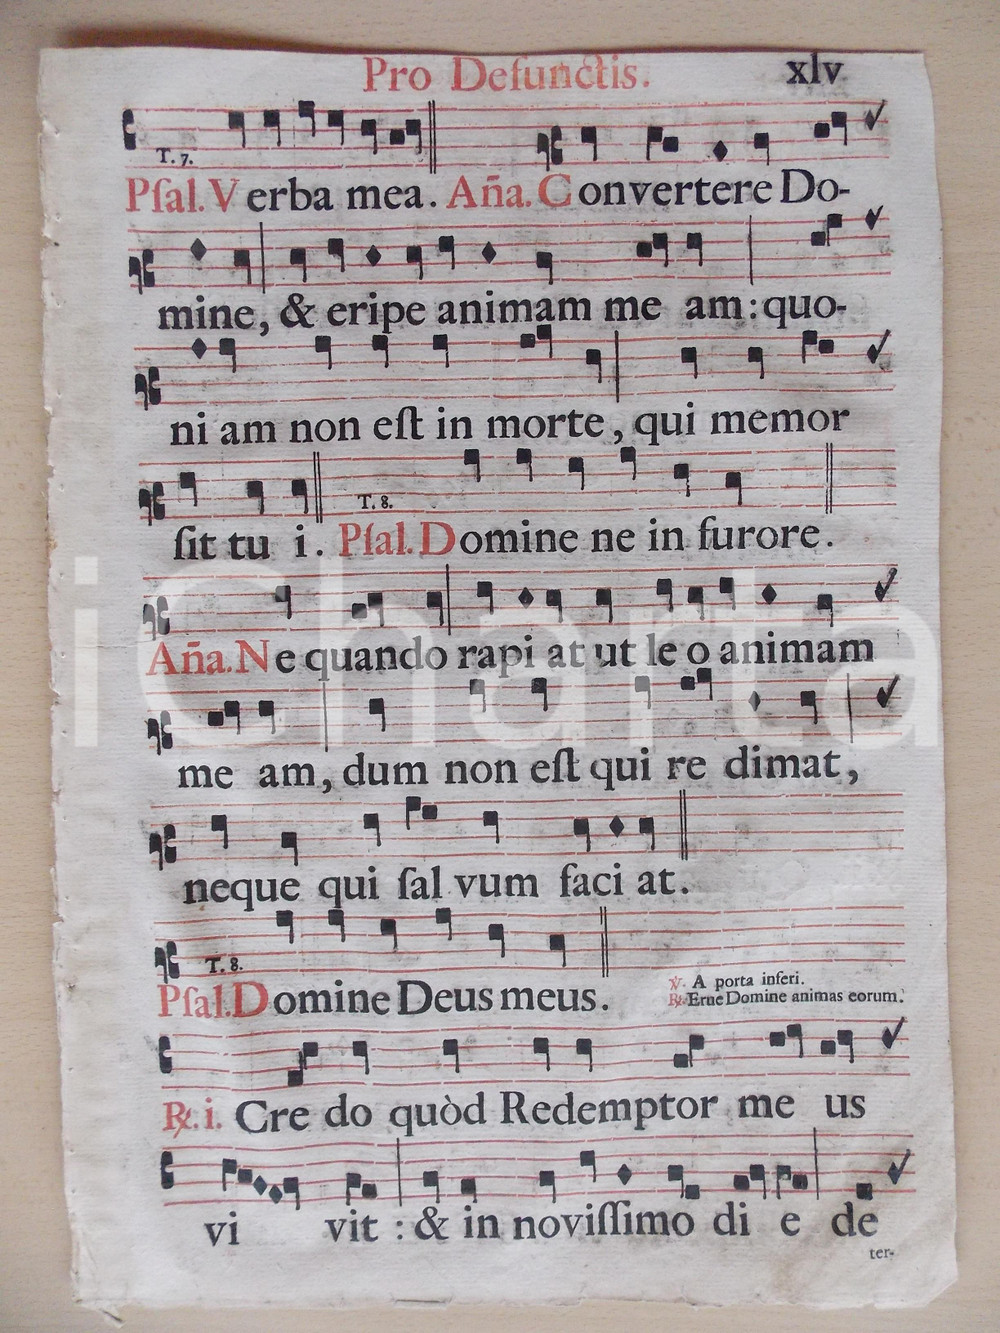 Pro Defunctis. xlv
T. 7.
Pſal. Verba mea. Aña. Convertere Do-
mine, & eripe animam me am: quo-
ni am non eſt in morte, qui memor
T. 8.
ſit tu i. Pſal. Domine ne in furore.
Aña. Ne quando rapi at ut le o animam
me am, dum non eſt qui re dimat,
neque qui ſal vum faci at.
T. 8.
Pſal. Domine Deus meus. ℣. A porta inferi.
℟. Erue Domine animas eorum.
℟. i. Cre do quòd Redemptor me us
vi vit : & in noviſſimo di e de
ter-
iCharta